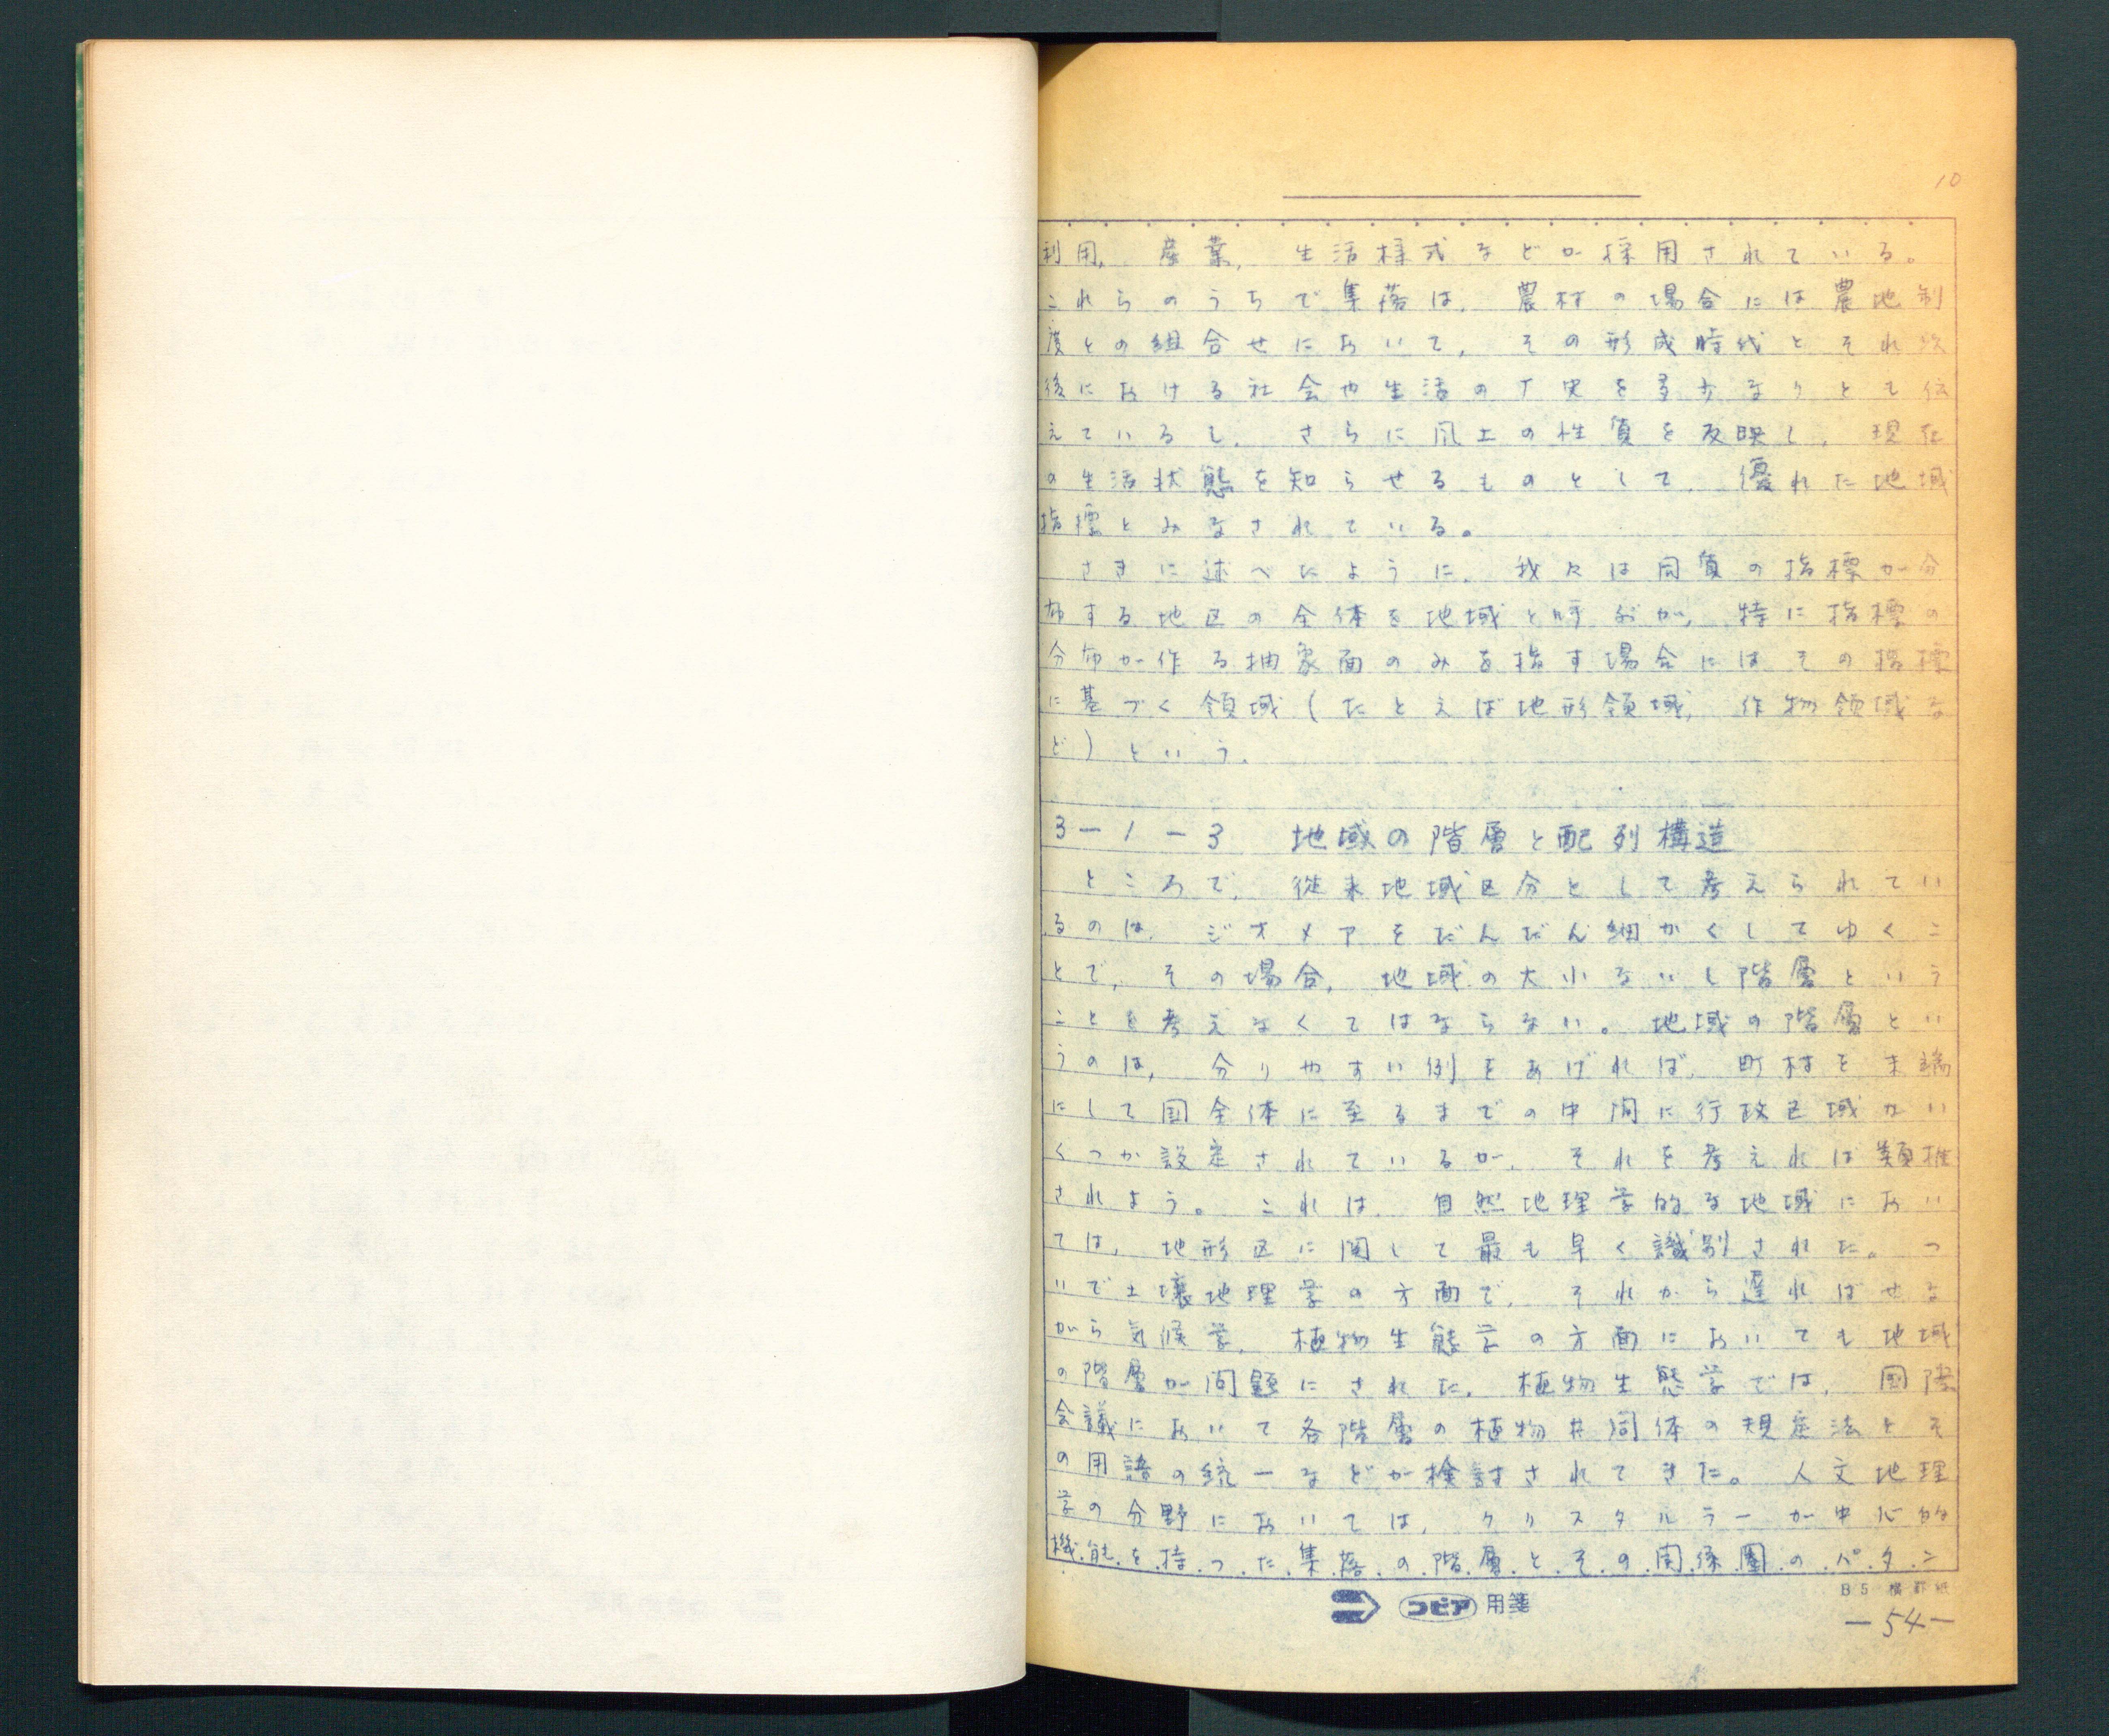 10
利用, 産業, 生活様式などが採用されている。
これらのうちで集落は, 農村の場合には農地制
度との組合せにおいて, その形成時代とそれ以
後における社会や生活の丁史を多少なりとも伝
えているし, さらに風土の性質を反映し, 現在
の生活状態を知らせるものとして, 優れた地域
指標とみなされている。
さきに述べたように, 我々は同質の指標が分
布する地区の全体を地域と呼ぶが, 特に指標の
分布が作る抽象面のみを指す場合にはその指標
に基づく領域(たとえば地形領域, 作物領域な
ど)という.
3-1-3 地域の階層と配列構造
ところで, 従来地域区分として考えられてい
るのは, ジオメアをだんだん細かくしてゆくこ
とで, その場合, 地域の大小ないし階層という
ことを考えなくてはならない。地域の階層とい
うのは, 分りやすい例をあげれば, 町村を末端
にして国全体に至るまでの中間に行政区域がい
くつか設定されているが, それを考えれば類推
されよう。これは, 自然地理学的な地域におい
ては, 地形区に関して最も早く識別された。つ
いで土壌地理学の方面で, それから遅ればせな
がら気候学, 植物生態学の方面においても地域
の階層が問題にされた. 植物生態学では, 国際
会議において各階層の植物共同体の規定法とそ
の用語の統一などが検討されてきた。人文地理
学の分野においては, クリスタルラーが中心的
機能を持った集落の階層とその関係圏のパタン
コピア 用箋
B5 横罫紙
-54-